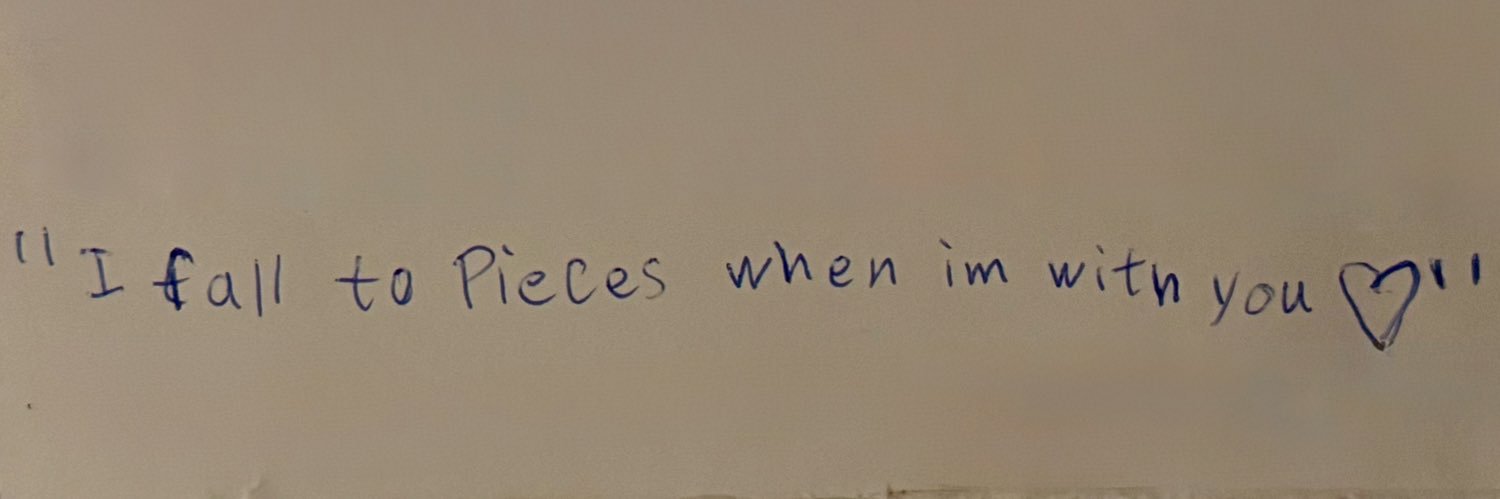 "I fall to Pieces when im with you ♡"